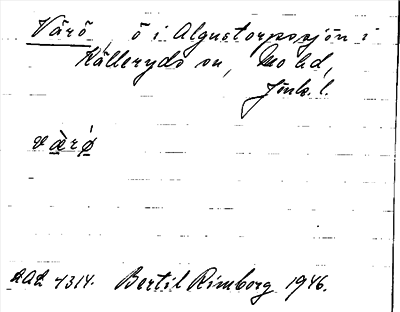 Värö, ö i Algustorpssjön i
Källeryds sn, Mo hd,
Jönk. l.
värö
ULA 4314. Bertil Rimborg 1946.